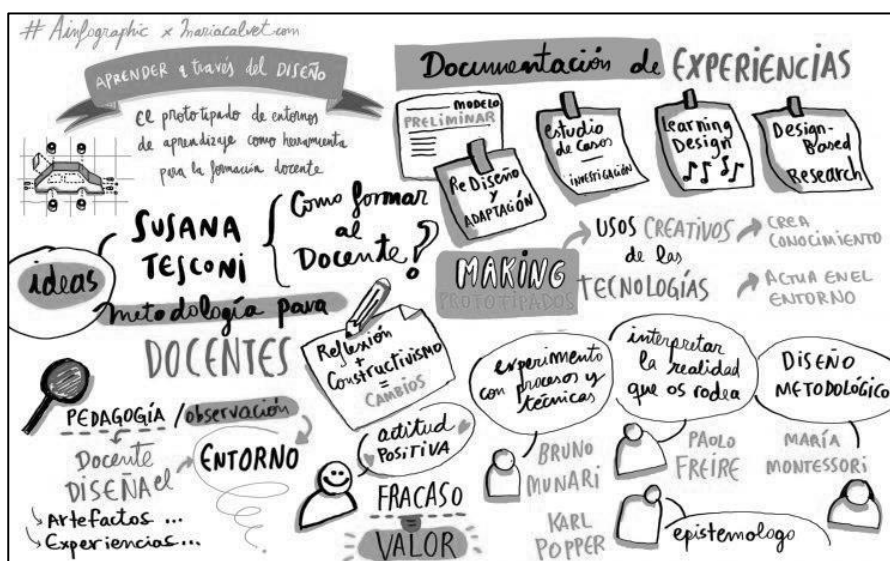 # Ainfographic x mariacalvet.com
APRENDER a través del DISEÑO
El prototipado de entornos
de aprendizaje como herramienta
para la formación docente
ideas
SUSANA
TESCONI
Como formar
al
Docente?
metodología para
DOCENTES
PEDAGOGÍA / observación
Docente
DISEÑA el
ENTORNO
Artefactos ...
Experiencias ...
Reflexión
+
Constructivismo
=
CAMBIOS
actitud
POSITIVA
FRACASO
=
VALOR
Documentación de EXPERIENCIAS
MODELO
PRELIMINAR
ReDiseño
y
ADAPTACIÓN
estudio
de Casos
INVESTIGACIÓN
Learning
Design
Design-
Based
Research
MAKING
PROTOTIPADOS
USOS CREATIVOS
de las
TECNOLOGÍAS
CREA
CONOCIMIENTO
ACTUA EN EL
ENTORNO
experimento
con procesos y
técnicas
BRUNO
MUNARI
interpretar
la realidad
que os rodea
PAOLO
FREIRE
DISEÑO
METODOLÓGICO
MARÍA
MONTESSORI
KARL
POPPER
epistemologo